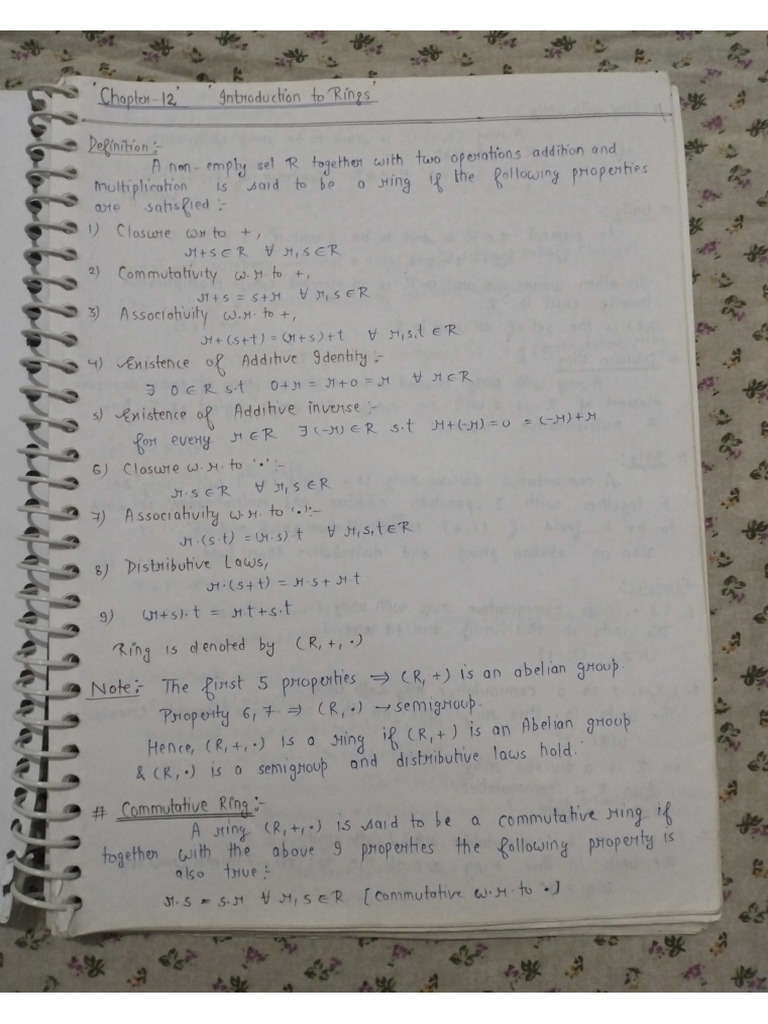 'Chapter-12' 'Introduction to Rings'
Definition :-
A non-empty set R together with two operations addition and
multiplication is said to be a ring if the following properties
are satisfied :-
1) Closure w.r to +,
r+s ∈ R ∀ r, s ∈ R
2) Commutativity w.r. to +,
r+s = s+r ∀ r, s ∈ R
3) Associativity w.r. to +,
r+(s+t) = (r+s)+t ∀ r,s,t ∈ R
4) Existence of Additive Identity :-
∃ 0 ∈ R s.t 0+r = r+0 = r ∀ r ∈ R
5) Existence of Additive inverse :-
for every r ∈ R ∃ (-r) ∈ R s.t r+(-r) = 0 = (-r)+r
6) Closure w.r. to '•' :-
r.s ∈ R ∀ r, s ∈ R
7) Associativity w.r. to '•' :-
r.(s.t) = (r.s).t ∀ r,s,t ∈ R
8) Distributive Laws,
r.(s+t) = r.s + r.t
9) (r+s).t = r.t + s.t
Ring is denoted by (R, +, •)
Note :- The first 5 properties ⇒ (R, +) is an abelian group.
Property 6, 7 ⇒ (R, •) → semigroup.
Hence, (R, +, •) is a ring if (R, +) is an Abelian group
& (R, •) is a semigroup and distributive laws hold.
# Commutative Ring :-
A ring (R, +, •) is said to be a commutative ring if
together with the above 9 properties the following property is
also true :-
r.s = s.r ∀ r, s ∈ R [commutative w.r. to •]